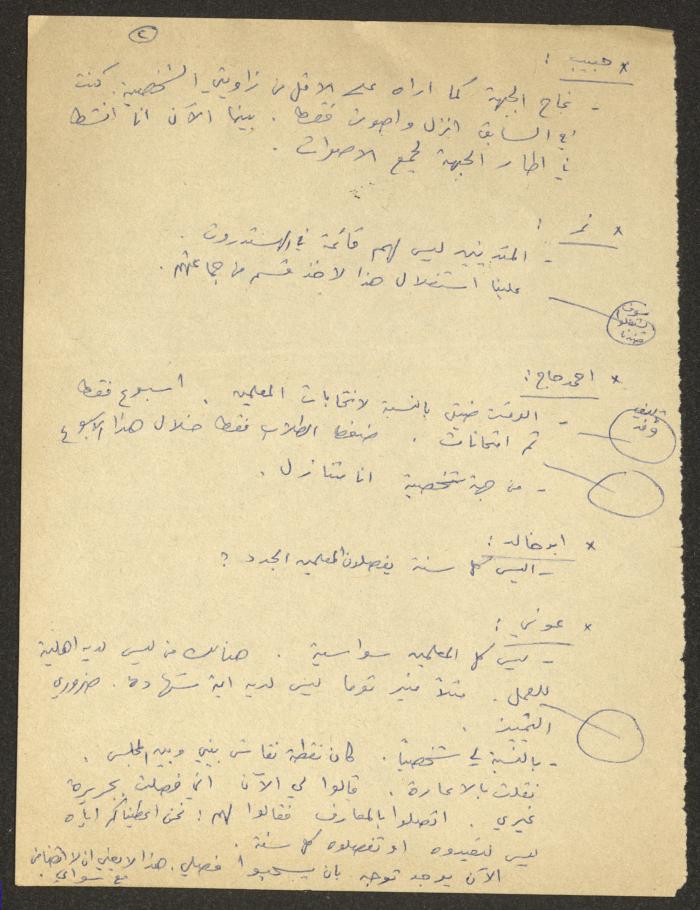 ٢
* حبيب :
- نجاح الجبهة كما اراه على الاقل من زاويتي الشخصية. كنت
في السابق انزل واصوت فقط . بينما الآن انا انشط
في اطار الجبهة لجمع الاصوات .
* نمر :
- المتدينين ليس لهم قائمة في الهستدروت .
علينا استغلال هذا لأخذ قسم من جماعتهم .
سوف
يستغلوا
ضدنا
* احمد حاج :
- الوقت ضيق بالنسبة لانتخابات المعلمين . اسبوع فقط
ثم امتحانات . ضغط الطلاب فقط خلال هذا الاسبوع
وفد
- من جهة شخصية انا متنازل .
* ابو خالد :
- اليس كل سنة يفصلون المعلمين الجدد ؟
* عوني :
- ليس كل المعلمين سواسية . هنالك من ليس لديه اهلية
للعمل . مثلاً منير توما ليس لديه اية شهادة . ضروري
التمييز .
- بالنسبة لي شخصياً . كان نقطة نقاش بيني وبين المجلس .
نقلت بالاعارة . قالوا لي الآن اني فصلت بجريرة
غيري . اتصلوا بالمعارف فقالوا لهم : نحن اعطيناكم اياه
ليس لتعيدوه او تفصلوه كل سنة .
الآن يوجد توجه بان يسحبوا فصلي . هذا لا يعني ان لا اتضامن
مع سواي